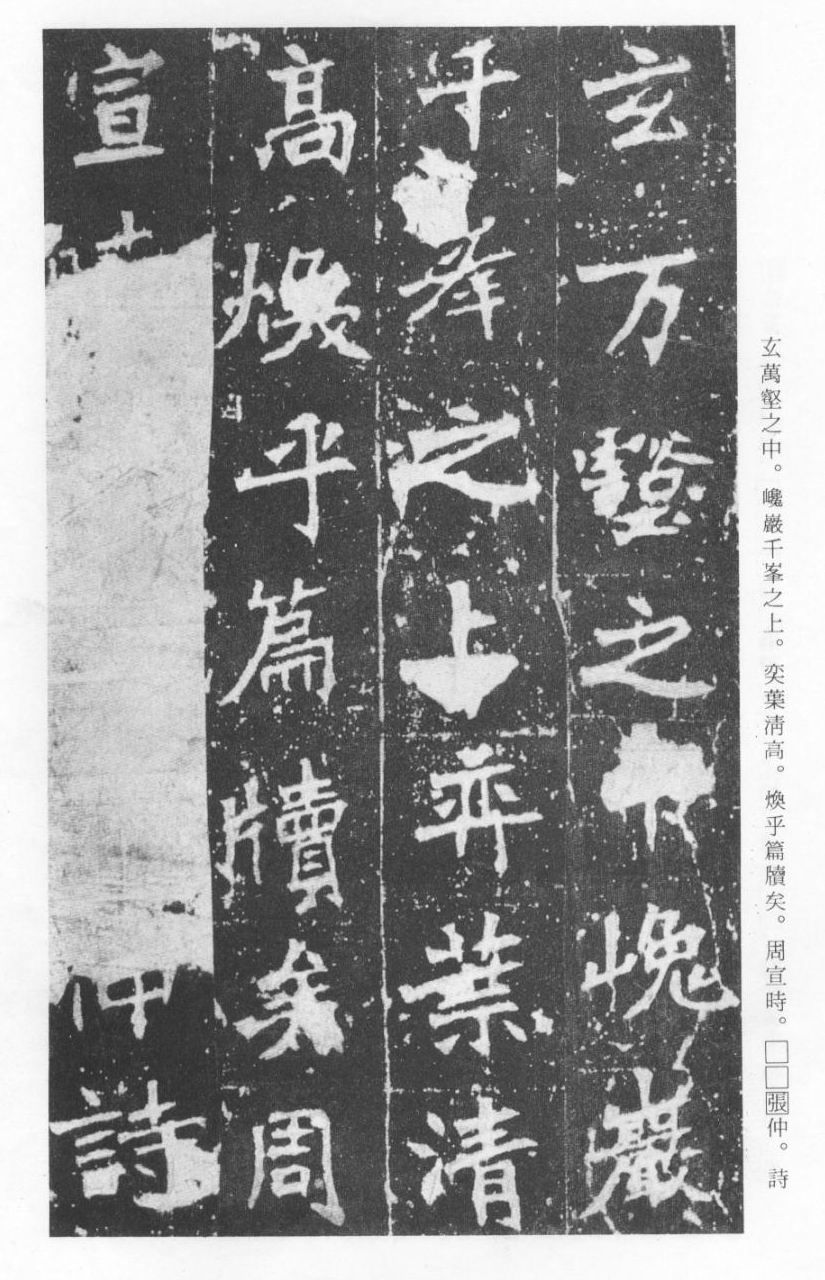 玄萬壑之中。巉巖千峯之上。奕葉清高。煥乎篇牘矣。周宣時。□□張仲。詩
玄万壑之中巉巖
千峯之上弈葉清
高煥乎篇牘矣周
宣仲詩